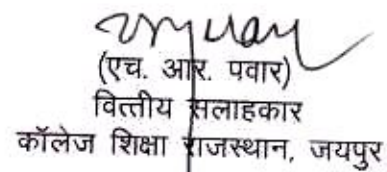 (एच. आर. पवार)
वित्तीय सलाहकार
कॉलेज शिक्षा राजस्थान, जयपुर